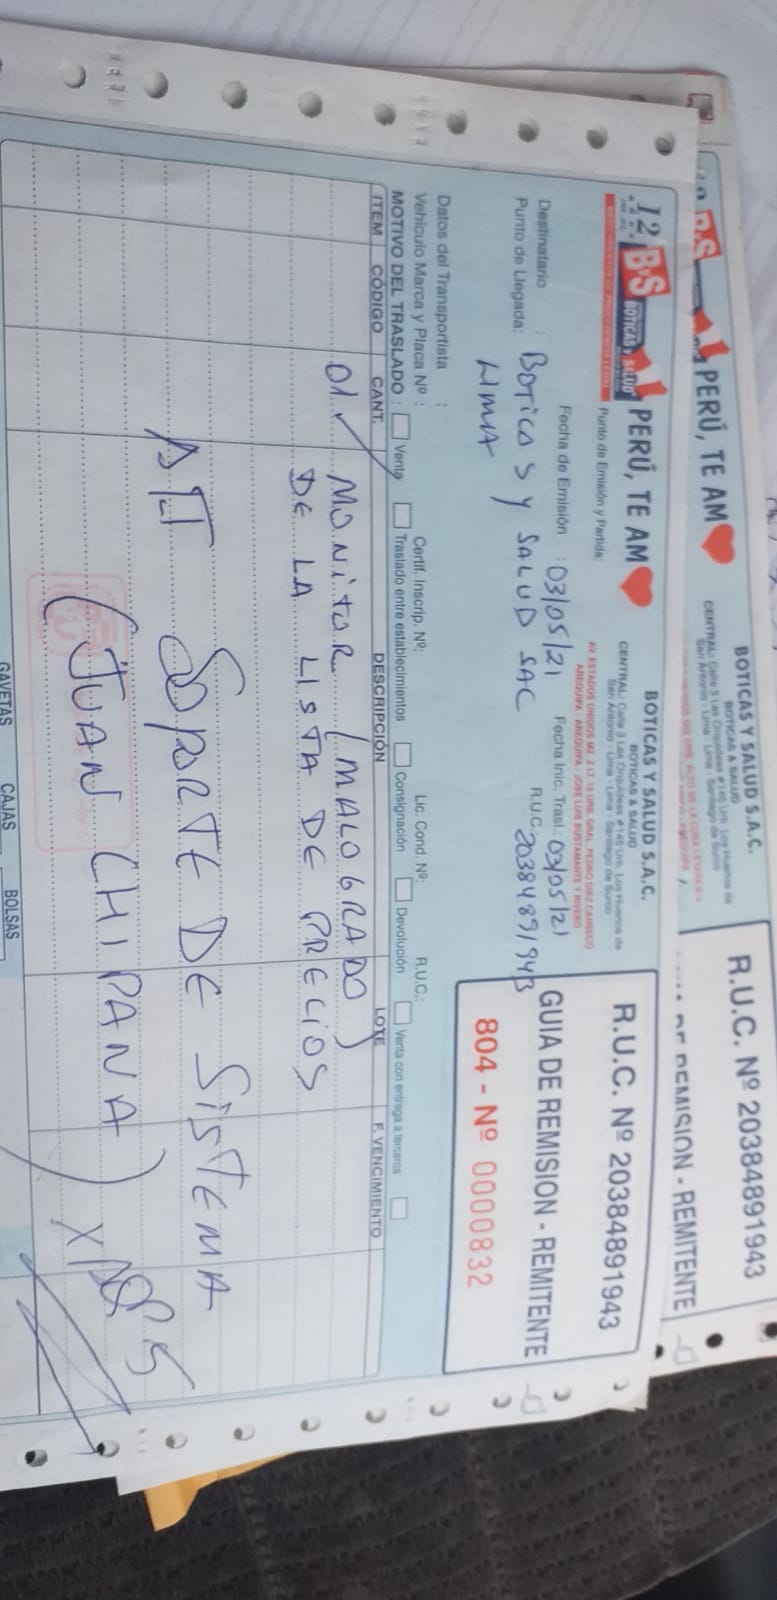 BOTICAS Y SALUD S.A.C.
BOTICAS & SALUD
R.U.C. Nº 20384891943
B·S PERÚ, TE AM
REMISION - REMITENTE
12
B·S PERÚ, TE AM
BOTICAS Y SALUD
BOTICAS Y SALUD S.A.C.
BOTICAS & SALUD
CENTRAL: Calle 3 Las Orquídeas #145 Urb. Los Huertos de
San Antonio - Lima - Lima - Santiago de Surco
R.U.C. Nº 20384891943
Punto de Emisión y Partida:
AV ESTADOS UNIDOS MZ. Z LT. 15 URB. GRAL. PEDRO DIEZ CANSECO
AREQUIPA - AREQUIPA - JOSE LUIS BUSTAMANTE Y RIVERO
GUIA DE REMISION - REMITENTE
804 - Nº 0000832
Fecha de Emisión : 03/05/21 Fecha Inic. Trasl.: 03/05/21
Destinatario : BOTICAS Y SALUD SAC R.U.C.: 20384891943
Punto de Llegada: LIMA
Datos del Transportista :
Vehículo Marca y Placa Nº : Certif. Inscrip. Nº: Lic. Cond. Nº: R.U.C.:
MOTIVO DEL TRASLADO : Venta Traslado entre establecimientos Consignación Devolución Venta con entrega a terceros
ITEM CÓDIGO CANT. DESCRIPCIÓN LOTE F. VENCIMIENTO
01 MONITOR (MALOGRADO)
DE LA LISTA DE PRECIOS
ATT SOPORTE DE SISTEMA
(JUAN CHIPANA)
GAVETAS CAJAS BOLSAS